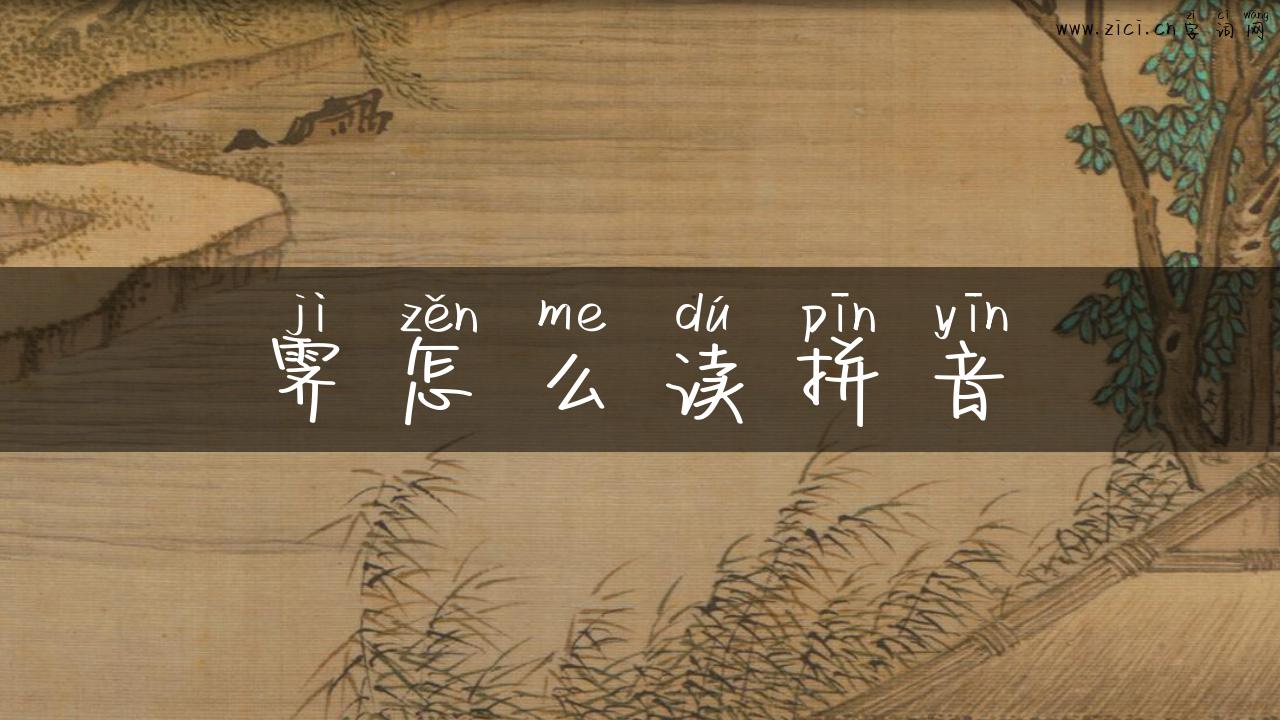 zì cí wǎng
www.zici.cn字词网
jì zěn me dú pīn yīn
霁怎么读拼音